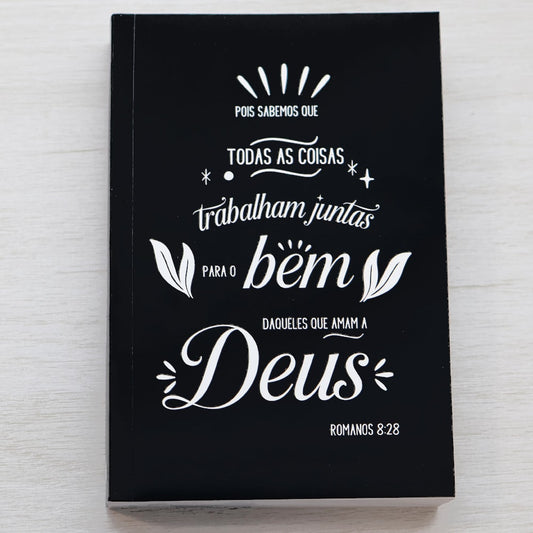 POIS SABEMOS QUE
TODAS AS COISAS
trabalham juntas
PARA O bem
DAQUELES QUE AMAM A
Deus
ROMANOS 8:28